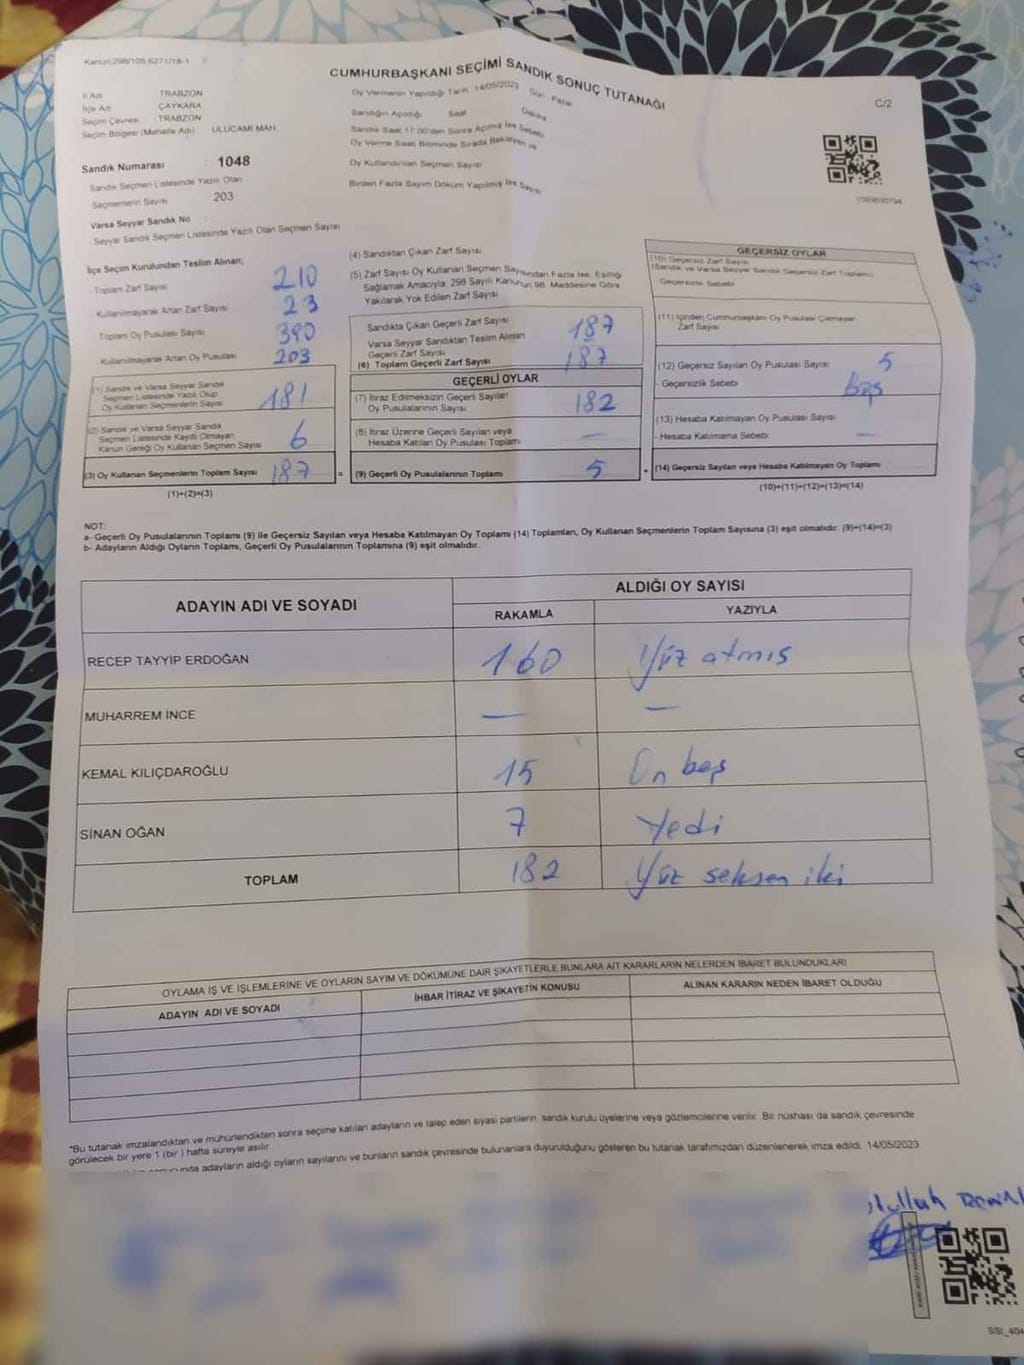 Kanun:298/105,6271/18-1
CUMHURBAŞKANI SEÇİMİ SANDIK SONUÇ TUTANAĞI
C/2
İl Adı : TRABZON
İlçe Adı : ÇAYKARA
Seçim Çevresi : TRABZON
Seçim Bölgesi (Mahalle Adı) : ULUCAMİ MAH.
Sandık Numarası : 1048
Sandık Seçmen Listesinde Yazılı Olan
Seçmenlerin Sayısı : 203
Varsa Seyyar Sandık No :
Seyyar Sandık Seçmen Listesinde Yazılı Olan Seçmen Sayısı
Oy Vermenin Yapıldığı Tarih 14/05/2023 Gün Pazar
Sandığın Açıldığı Saat Dakika
Sandık Saat 17:00'den Sonra Açılmış İse Sebebi
Oy Verme Saati Bitiminde Sırada Bekleyen ve
Oy Kullandırılan Seçmen Sayısı
Birden Fazla Sayım Döküm Yapılmış İse Sayısı
İlçe Seçim Kurulundan Teslim Alınan;
Toplam Zarf Sayısı 210
Kullanılmayarak Artan Zarf Sayısı 23
Toplam Oy Pusulası Sayısı 390
Kullanılmayarak Artan Oy Pusulası 203
(1) Sandık ve Varsa Seyyar Sandık
Seçmen Listesinde Yazılı Olup
Oy Kullanan Seçmenlerin Sayısı 181
(2) Sandık ve Varsa Seyyar Sandık
Seçmen Listesinde Kaydı Olmayan
Kanun Gereği Oy Kullanan Seçmen Sayısı 6
(3) Oy Kullanan Seçmenlerin Toplam Sayısı 187 =
(1)+(2)=(3)
(4) Sandıktan Çıkan Zarf Sayısı
(5) Zarf Sayısı Oy Kullanan Seçmen Sayısından Fazla İse, Eşitliği
Sağlamak Amacıyla, 298 Sayılı Kanunun 98. Maddesine Göre
Yakılarak Yok Edilen Zarf Sayısı
Sandıkta Çıkan Geçerli Zarf Sayısı 187
Varsa Seyyar Sandıktan Teslim Alınan
Geçerli Zarf Sayısı
(6) Toplam Geçerli Zarf Sayısı 187
GEÇERLİ OYLAR
(7) İtiraz Edilmeksizin Geçerli Sayılan
Oy Pusulalarının Sayısı 182
(8) İtiraz Üzerine Geçerli Sayılan veya
Hesaba Katılan Oy Pusulası Toplamı —
(9) Geçerli Oy Pusulalarının Toplamı 5 +
GEÇERSİZ OYLAR
(10) Geçersiz Zarf Sayısı
(Sandık ve Varsa Seyyar Sandık Geçersiz Zarf Toplamı)
Geçersizlik Sebebi
(11) İçinden Cumhurbaşkanı Oy Pusulası Çıkmayan
Zarf Sayısı
(12) Geçersiz Sayılan Oy Pusulası Sayısı 5
- Geçersizlik Sebebi Boş
(13) Hesaba Katılmayan Oy Pusulası Sayısı
- Hesaba Katılmama Sebebi —
(14) Geçersiz Sayılan veya Hesaba Katılmayan Oy Toplamı
(10)+(11)+(12)+(13)=(14)
NOT:
a- Geçerli Oy Pusulalarının Toplamı (9) ile Geçersiz Sayılan veya Hesaba Katılmayan Oy Toplamı (14) Toplamları, Oy Kullanan Seçmenlerin Toplam Sayısına (3) eşit olmalıdır. (9)+(14)=(3)
b- Adayların Aldığı Oyların Toplamı, Geçerli Oy Pusulalarının Toplamına (9) eşit olmalıdır.
ADAYIN ADI VE SOYADI ALDIĞI OY SAYISI
RAKAMLA YAZIYLA
RECEP TAYYİP ERDOĞAN 160 Yüz atmış
MUHARREM İNCE — —
KEMAL KILIÇDAROĞLU 15 On beş
SİNAN OĞAN 7 Yedi
TOPLAM 182 Yüz seksen iki
OYLAMA İŞ VE İŞLEMLERİNE VE OYLARIN SAYIM VE DÖKÜMÜNE DAİR ŞİKAYETLERLE BUNLARA AİT KARARLARIN NELERDEN İBARET BULUNDUKLARI
ADAYIN ADI VE SOYADI İHBAR İTİRAZ VE ŞİKAYETİN KONUSU ALINAN KARARIN NEDEN İBARET OLDUĞU
*Bu tutanak imzalandıktan ve mühürlendikten sonra seçime katılan adayların ve talep eden siyasi partilerin sandık kurulu üyelerine veya gözlemcilerine verilir. Bir nüshası da sandık çevresinde
görülecek bir yere 1 (bir) hafta süreyle asılır.
adayların aldığı oyların sayılarını ve bunların sandık çevresinde bulunanlara duyurulduğunu gösteren bu tutanak tarafımızdan düzenlenerek imza edildi. 14/05/2023